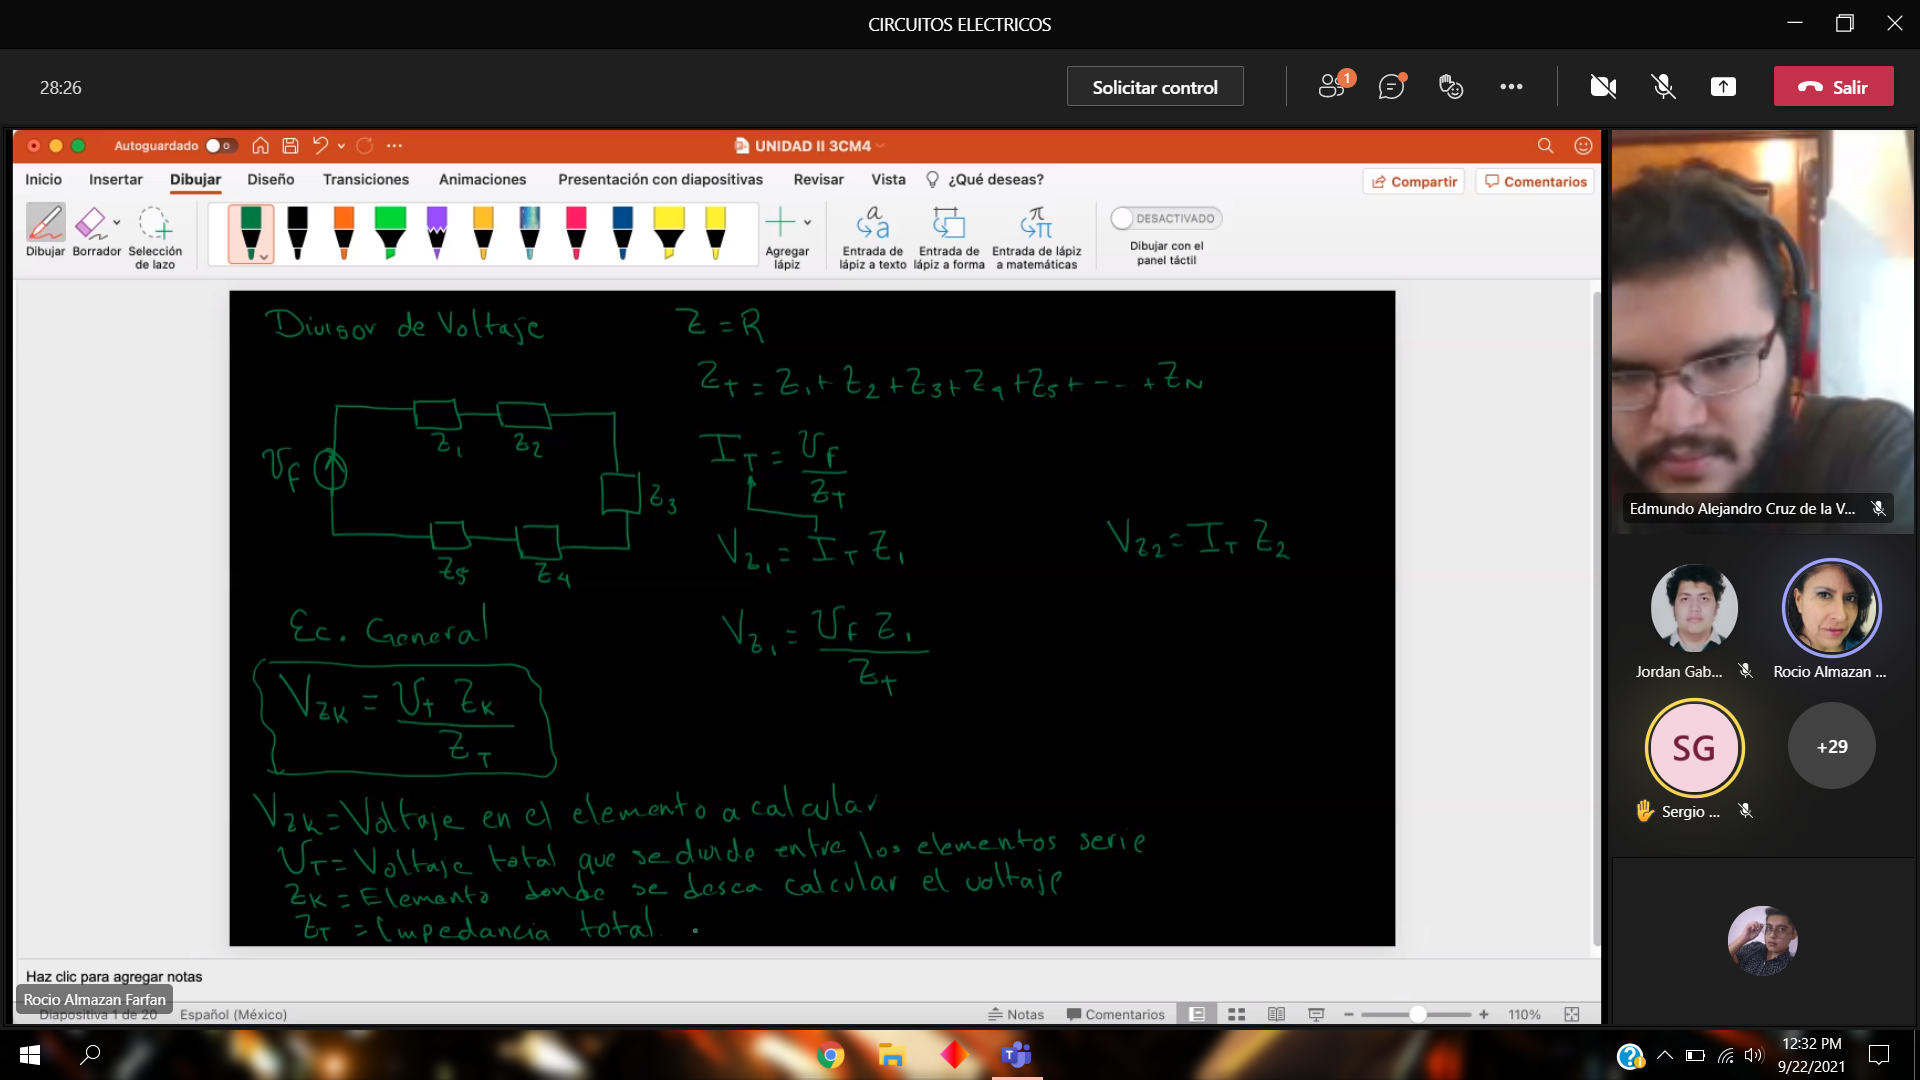 CIRCUITOS ELECTRICOS
28:26
Solicitar control
1
Salir
Autoguardado
UNIDAD II 3CM4
Inicio Insertar Dibujar Diseño Transiciones Animaciones Presentación con diapositivas Revisar Vista ¿Qué deseas? Compartir Comentarios
Dibujar Borrador Selección de lazo Agregar lápiz Entrada de lápiz a texto Entrada de lápiz a forma Entrada de lápiz a matemáticas
DESACTIVADO
Dibujar con el panel táctil
Divisor de Voltaje
Z = R
Z_T = Z_1 + Z_2 + Z_3 + Z_4 + Z_5 + ---- + Z_N
Z_1 Z_2
V_F
Z_3
Z_5 Z_4
I_T = V_F / Z_T
V_Z1 = I_T Z_1
V_Z2 = I_T Z_2
V_Z1 = V_F Z_1 / Z_T
Ec. General
V_ZK = V_T Z_K / Z_T
V_ZK = Voltaje en el elemento a calcular
V_T = Voltaje total que se divide entre los elementos serie
Z_K = Elemento donde se desea calcular el voltaje
Z_T = Impedancia total.
Haz clic para agregar notas
Rocio Almazan Farfan
Diapositiva 1 de 20 Español (México) Notas Comentarios 110%
Edmundo Alejandro Cruz de la V...
Jordan Gab...
Rocio Almazan ...
SG
+29
Sergio ...
12:32 PM
9/22/2021